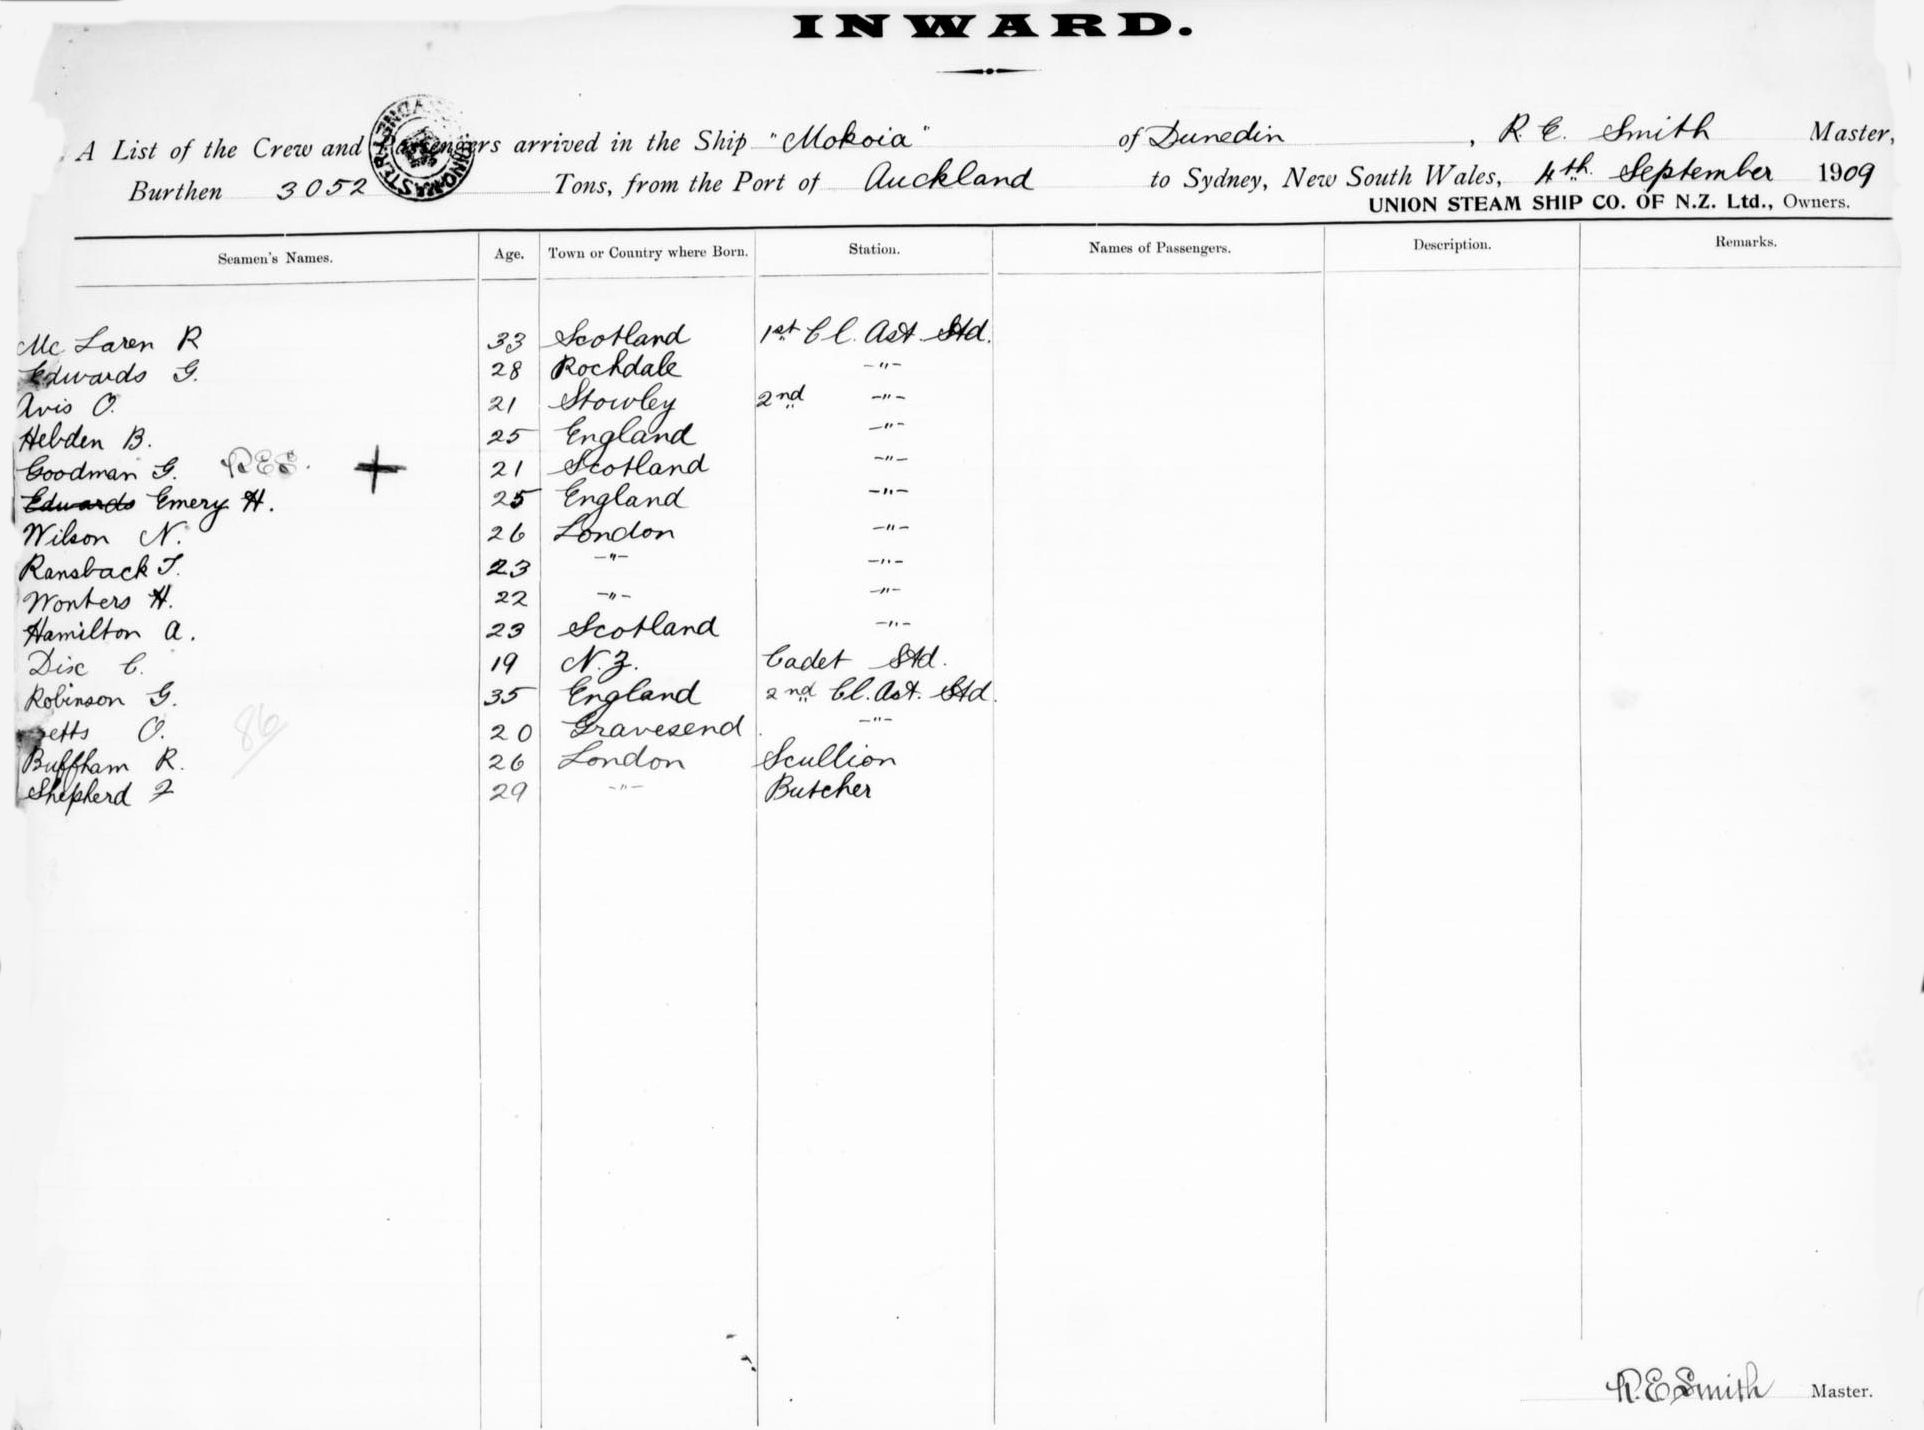 INWARD.
A List of the Crew and Passengers arrived in the Ship "Mokoia" of Dunedin, R. E. Smith Master,
Burthen 3052 Tons, from the Port of Auckland to Sydney, New South Wales, 4th. September 1909
UNION STEAM SHIP CO. OF N.Z. Ltd., Owners.
Seamen's Names. Age. Town or Country where Born. Station. Names of Passengers. Description. Remarks.
Mc Laren R 33 Scotland 1st Cl. Ast. Std.
Edwards G. 28 Rochdale -"-
Avis O. 21 Stowley 2nd -"-
Hebden B. 25 England -"-
Goodman G. RES. + 21 Scotland -"-
Edwards Emery H. 25 England -"-
Wilson N. 26 London -"-
Ransback T. 23 -"- -"-
Wonters H. 22 -"- -"-
Hamilton A. 23 Scotland -"-
Dix C. 19 N.Z. Cadet Std.
Robinson G. 35 England 2nd Cl. Ast. Std.
O. 20 Gravesend -"-
86
Buffham R. 26 London Scullion
Shepherd F 29 -"- Butcher
R.E Smith Master.